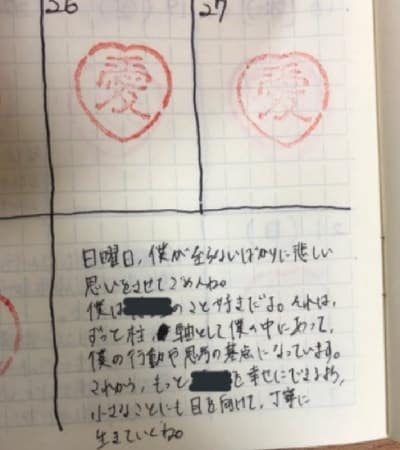 26
27
愛
愛
日曜日、僕が至らないばかりに悲しい
思いをさせてごめんね。
僕は のこと好きだよ。それは、
ずっと柱、軸として僕の中にあって、
僕の行動や思考の基点になっています。
これから、もっと を幸せにできるよう、
小さなことにも目を向けて、丁寧に
生きていくね。